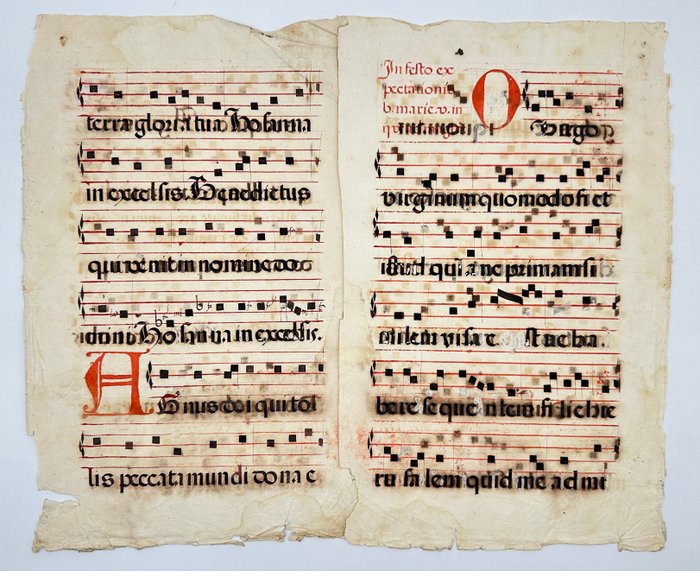 terræ gloria tua Hosanna
in excelsis. Benedictus
qui venit in nomine do
mini Hosanna in excelsis.
AGnus dei qui tol
lis peccata mundi dona e
In festo ex
pectationis
b. mariæ. v. in
O Virgo
virginum quomodo fi et
istud quia ne primam si
milem visa e st ne ha
bere se quen tem fi li e hie
ru sa lem quid me ad mi